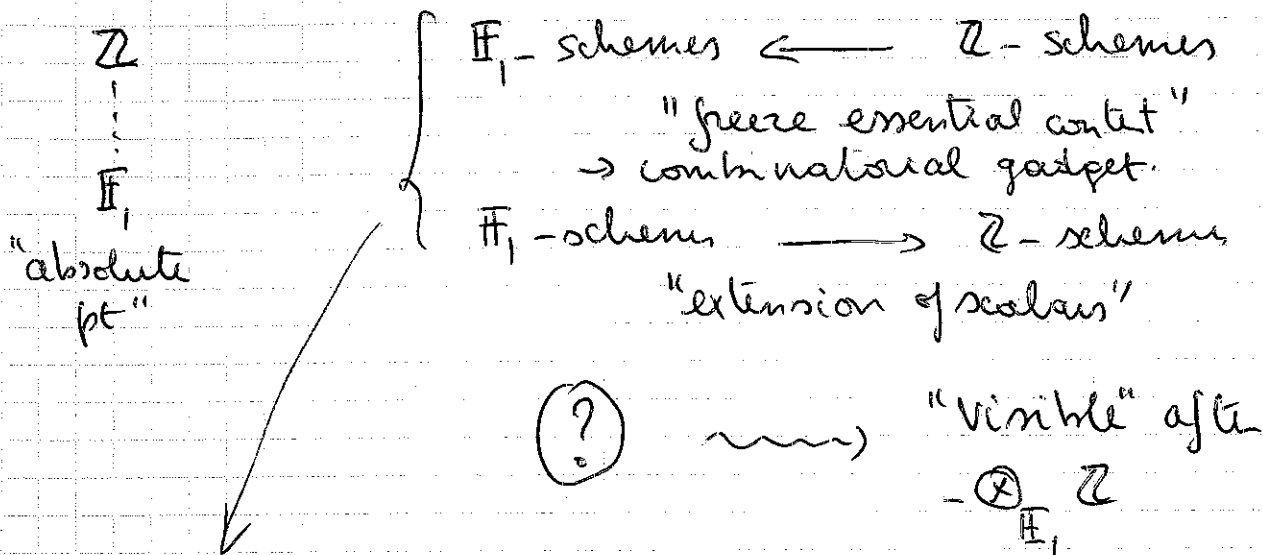 ℤ
𝔽₁
"absolute
pt"
𝔽₁ - schemes ← ℤ - schemes
"freeze essential content"
→ combinatorial gadget.
𝔽₁ - schemes → ℤ - schemes
"extension of scalars"
? ⇝ "visible" after
- ⊗_𝔽₁ ℤ